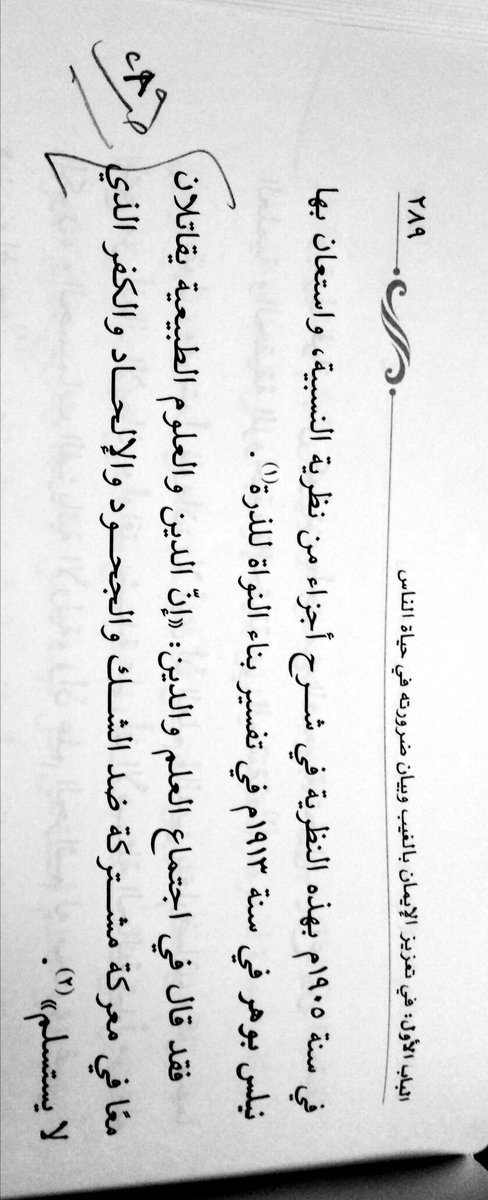 الباب الأول: في تعزيز الإيمان بالغيب وبيان ضرورته في حياة الناس ٢٨٩
في سنة ١٩٠٥م بهذه النظرية في شرح أجزاء من نظرية النسبية، واستعان بها
نيلس بوهر في سنة ١٩١٣م في تفسير بناء النواة للذرة(١).
فقد قال في اجتماع العلم والدين: «إنّ الدين والعلوم الطبيعية يقاتلان
معًا في معركة مشتركة ضد الشك والجحود والإلحاد والكفر الذي
لا يستسلم»(٢).